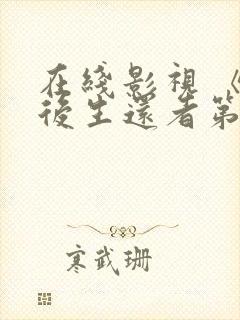 在綫影視《
後生還者第
寒武珊